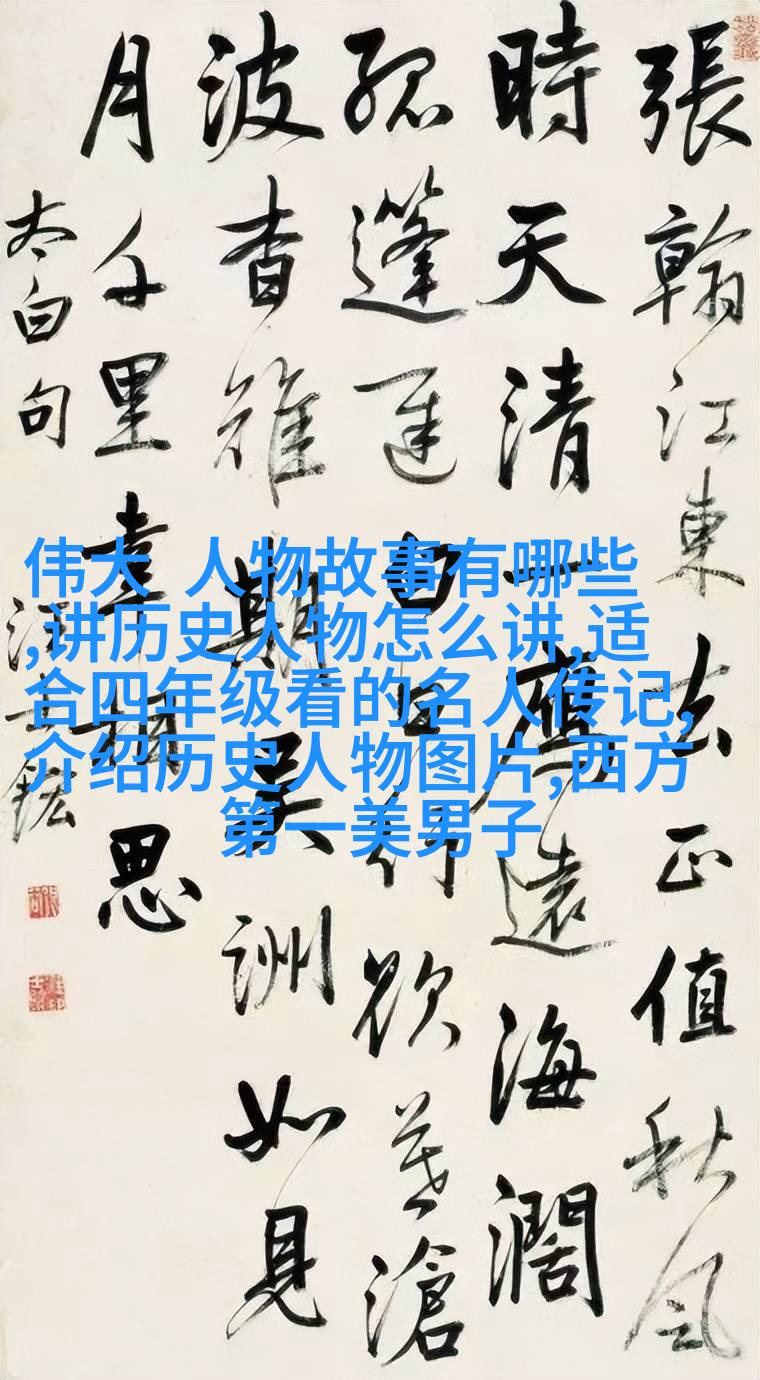 張翰江東去正值秋風
時天清一鴈遠海濶
孤蓬遲白日行欲暮滄
波杳難期吴洲如見
月千里幸相思
太白句
汪士鋐
伟大 人物故事有哪些
,讲历史人物怎么讲,适
合四年级看的名人传记,
介绍历史人物图片,西方
第一美男子